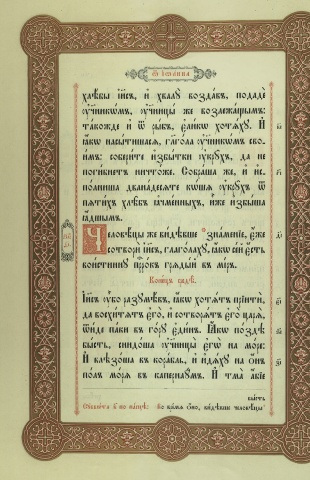 Ѿ Іѡа́нна
хлѣ́бы і҆и҃съ, и҆ хвалꙋ̀ возда́въ, подадѐ
ᲂу҆чн҃кѡ́мъ, ᲂу҆чн҃цы́ же возлежа́щымъ:
та́кожде и҆ ѿ ры̑бъ, є҆ли́кѡ хотѧ́хꙋ. И҆
ꙗ҆́кѡ насы́тишасѧ, гл҃го́ла ᲂу҆чн҃кѡ́мъ свои̑мъ:
собери́те и҆збы́тки ᲂу҆крꙋ̑хъ, да не
поги́бнетъ ничто́же. Собра́ша же, и҆ и҆спо́лниша
двана́десѧте кѡ́шѧ ᲂу҆крꙋ̑хъ ѿ
пѧти́хъ хлѣ̑бъ ꙗ҆чме́нныхъ, и҆̀же и҆збы́ша
ꙗ҆́дшымъ.
Человѣ́цы же ви́дѣвше зна́менїе, є҆́же
сотворѝ і҆и҃съ, глаго́лахꙋ, ꙗ҆́кѡ се́й є҆́сть
вои́стиннꙋ прⷪ҇ро́къ грѧды́й въ мі́ръ.
Коне́цъ средѣ̀.
І҆и҃съ ᲂу҆̀бо разꙋмѣ́въ, ꙗ҆́кѡ хотѧ́тъ прїитѝ,
да восхи́тѧтъ є҆го̀, и҆ сотворѧ́тъ є҆го̀ царѧ̀,
ѿи́де па́ки въ го́рꙋ є҆ди́нъ. Ꙗ҆́кѡ по́здѣ
бы́сть, снидо́ша ᲂу҆чн҃цы̀ є҆гѡ̀ на мо́ре:
И҆ влѣзо́ша въ кора́бль, и҆ и҆дѧ́хꙋ на ѡ҆́нъ
по́лъ мо́рѧ въ капернаꙋ́мъ. И҆ тма̀ а҆́бїе
бы́сть
Во вре́мѧ ѻ҆́но, ви́дѣвше человѣ́цы